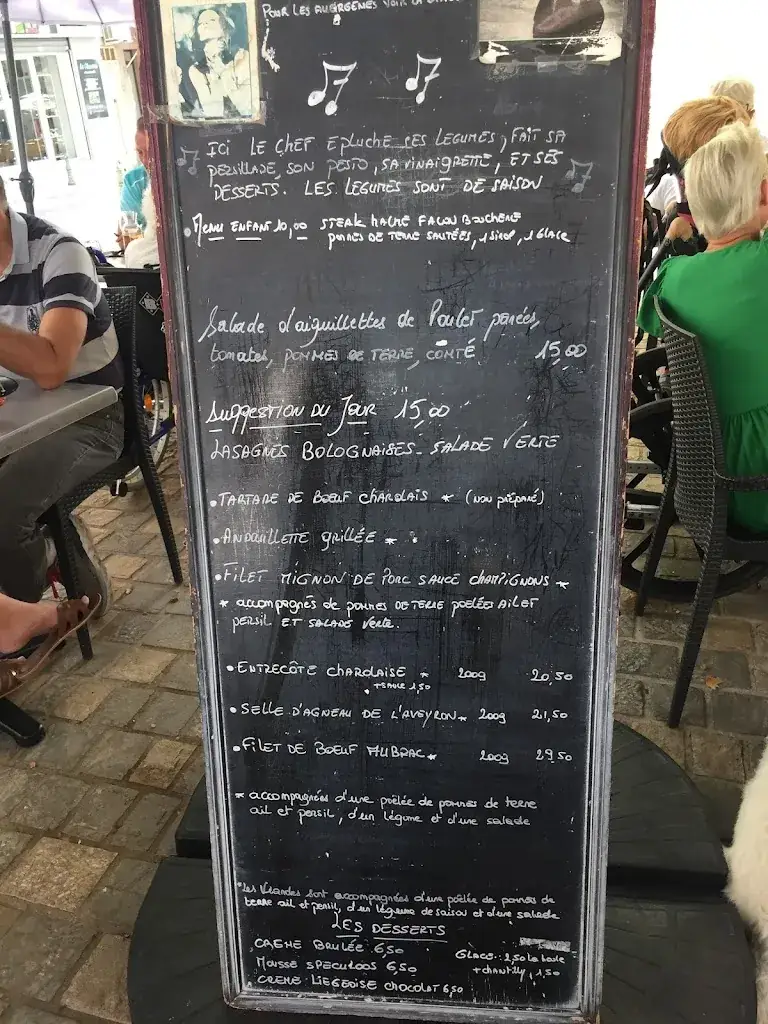 POUR LES ALLERGÈNES VOIR LA
ICI LE CHEF EPLUCHE SES LEGUMES, FAIT SA
PERSILLADE, SON PESTO, SA VINAIGRETTE, ET SES
DESSERTS. LES LEGUMES SONT DE SAISON
. MENU ENFANT 10,00 STEAK HACHÉ FAÇON BOUCHERE
POMMES DE TERRE SAUTÉES, 1 SIROP, 1 GLACE
Salade d'aiguillettes de Poulet panées,
tomates, POMMES DE TERRE, COMTÉ 15,00
SUGGESTION DU JOUR 15,00
LASAGNES BOLOGNAISES - SALADE VERTE
• TARTARE DE BŒUF CHAROLAIS * (NON PRÉPARÉ)
• ANDOUILLETTE GRILLÉE *
• FILET MIGNON DE PORC SAUCE CHAMPIGNONS *
* accompagnés de pommes DE TERRE POÊLÉES AIL ET
PERSIL ET SALADE VERTE.
• ENTRECÔTE CHAROLAISE * 200g 20,50
+ SAUCE 1,50
• SELLE D'AGNEAU DE L'AVEYRON * 200g 21,50
• FILET DE BŒUF AUBRAC * 200g 29,50
* accompagnées d'une poêlée de pommes de terre
ail et persil, d'un légume et d'une salade
* Les Viandes sont accompagnées d'une poêlée de pommes de
terre ail et persil, d'un légume de saison et d'une salade
LES DESSERTS
CREME BRULÉE 6,50
MOUSSE SPECULOOS 6,50
CREME LIEGEOISE CHOCOLAT 6,50
GLACE: 2,50 La boule
+ chantilly, 1,50